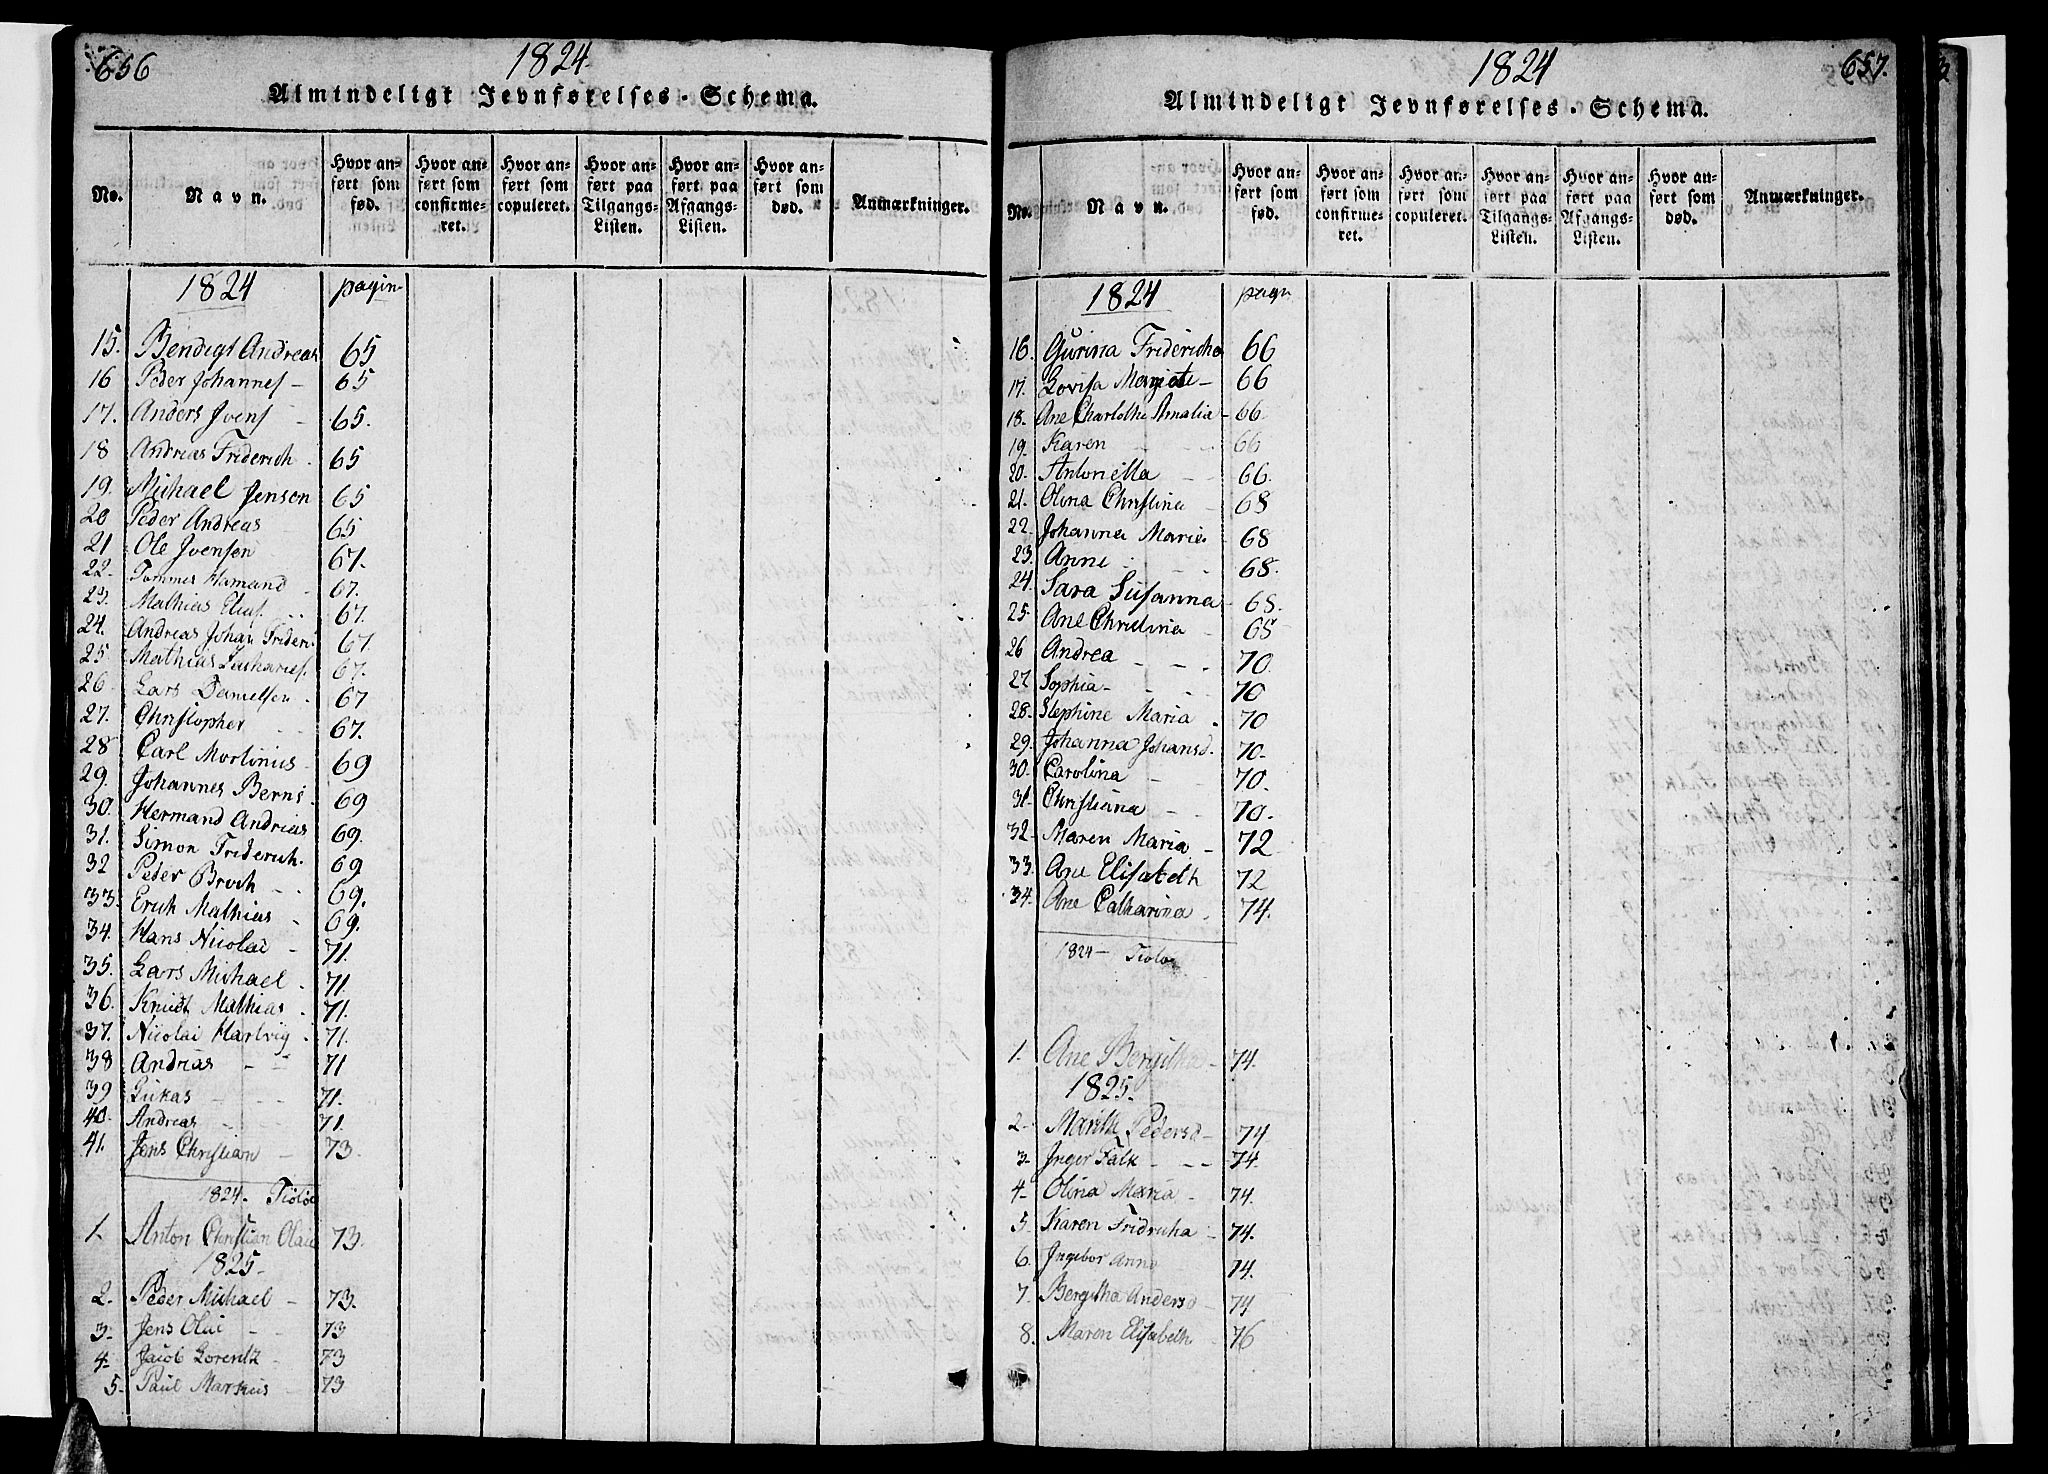 656
1824
Almindeligt Jevnførelses-Schema.
No.
Navn.
Hvor anført som fød.
Hvor anført som confirmeret.
Hvor anført som copuleret.
Hvor anført paa Tilgangs-Listen.
Hvor anført paa Afgangs-Listen.
Hvor anført som død.
Anmærkninger.
1824 pagin
15. Bendigt Andreas 65
16 Peder Johannes – 65
17. Anders Ivens – 65.
18 Andreas Friderich . 65
19. Michael Jenson 65
20 Peder Andreas 65
21 Ole Jvensen 67.
22. Tommes Hamand 67.
23. Mathias Elias 67.
24. Andreas Johan Frideri 67.
25 Mathias Zacharies. 67.
26 Lars Danielsen . 67
27. Christopher 67.
28 Carl Mortinius 69
29. Johannes Berns. 69
30. Hermand Andreas 69.
31. Simon Friderich. 69
32 Peder Broch 69.
33. Erich Mathias 69.
34. Hans Nicolai – 71.
35. Lars Michael . 71.
36. Knudt Mathias . 71.
37. Nicolai Hartvig . 71.
38 Andreas – – 71
39 Lukas – 71.
40. Andreas 71.
41. Jens Christian – 73.
1824. Tiøløe
1. Anton Christian Olai 73.
1825.
2. Peder Michael – 73.
3. Jens Olai 73
4. Jacob Lorentz 73
5. Paul Markus 73
1824
657.
Almindeligt Jevnførelses-Schema.
No.
Navn.
Hvor anført som fød.
Hvor anført som confirmeret.
Hvor anført som copuleret.
Hvor anført paa Tilgangs-Listen.
Hvor anført paa Afgangs-Listen.
Hvor anført som død.
Anmærkninger.
1824 pagn
16. Gurina Fridericha 66
17. Lovisa Margrete – 66
18. Ane Charlothe Amalia – 66
19. Karen 66
20. Antonetta 66.
21. Olina Christina 68
22. Johanna Maria 68
23. Anne 68.
24. Sara Susanna 68.
25. Ane Christina 68
26 Andrea 70.
27. Sophia – 70
28. Stephine Maria . 70
29. Johanna Johansd. 70.
30. Carolina 70.
31. Christiana 70.
32. Maren Maria – 72
33. Ane Elisabeth 72
34. Ane Catharina . 74.
1824 – Tiøløe
1. Ane Bergitha – 74.
1825.
2. Marith Pedersd – 74
3. Inger Falk – – – 74.
4. Olina Maria – 74.
5. Karen Fridricha 74.
6. Ingebor Anna 74.
7. Bergitha Andersd 74
8. Maren Elisabeth 76